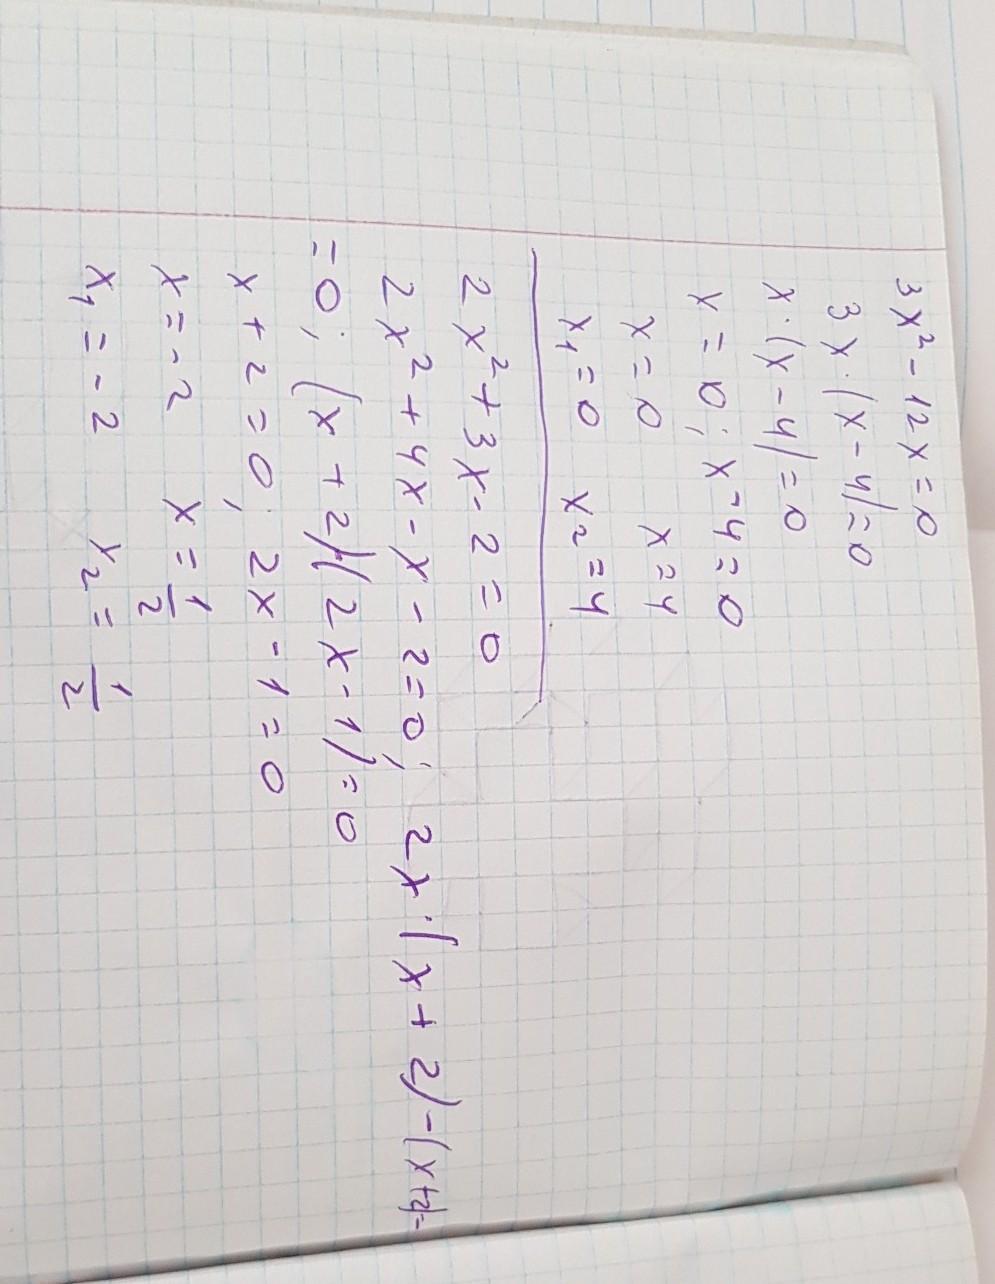 3x² - 12x = 0
3x · (x - 4) = 0
x · (x - 4) = 0
x = 0; x - 4 = 0
x = 0 x = 4
x₁ = 0 x₂ = 4
2x² + 3x - 2 = 0
2x² + 4x - x - 2 = 0; 2x · (x + 2) - (x + 2) =
= 0; (x + 2)(2x - 1) = 0
x + 2 = 0; 2x - 1 = 0
x = -2 x = 1/2
x₁ = -2 x₂ = 1/2